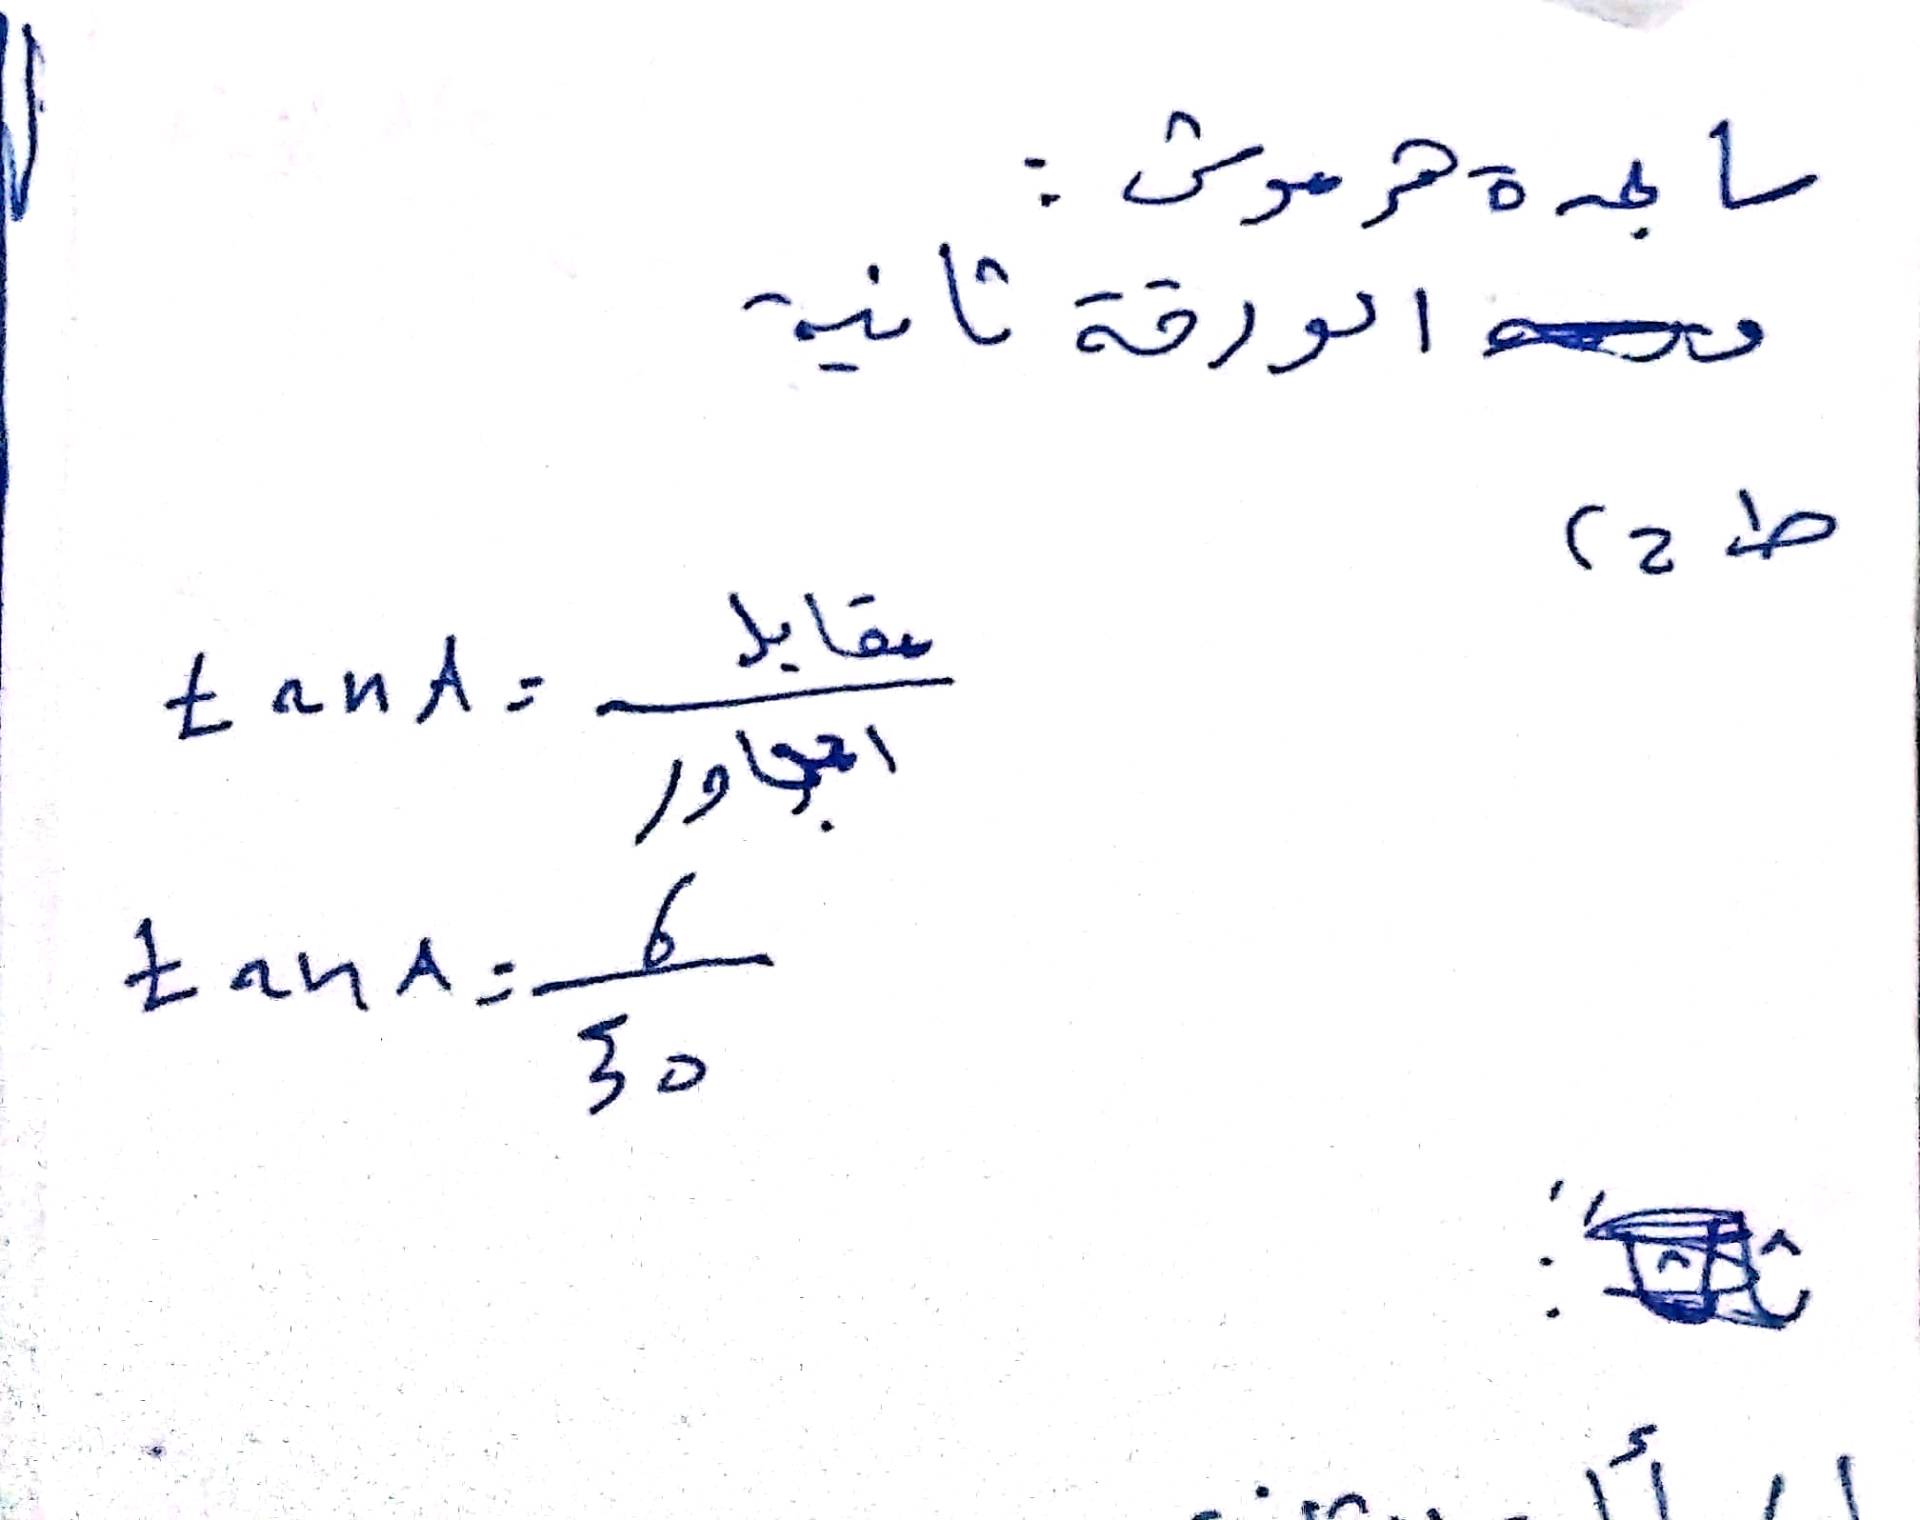 ساجدة حرموش :
الورقة ثانية
ط 2)
tan A = مقابل / المجاور
tan A = 6 / 30